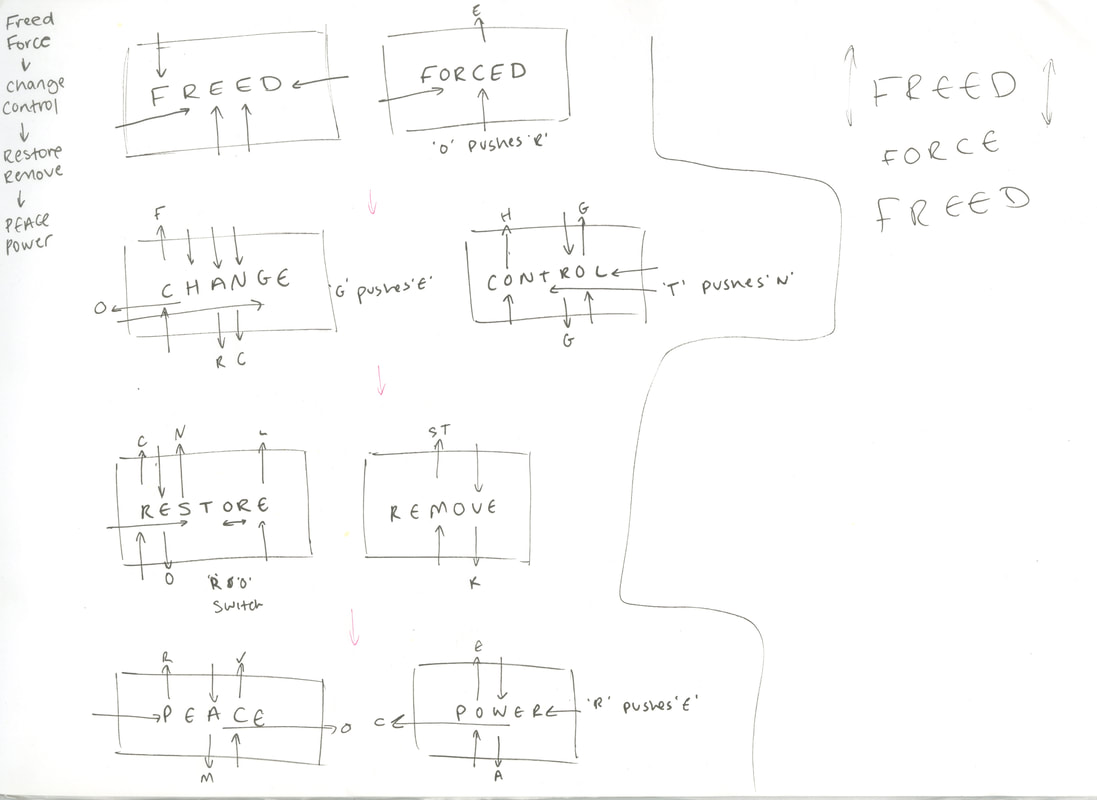 Freed
Force
change
control
Restore
Remove
PEACE
Power
FREED
E
FORCED
'O' pushes 'R'
F
CHANGE
O
R C
'G' pushes 'E'
H
G
CONTROL
G
'T' pushes 'N'
C
N
L
RESTORE
O
'R & O'
switch
ST
REMOVE
K
R
V
PEACE
O
M
E
POWER
C
A
'R' pushes 'E'
FREED
FORCE
FREED